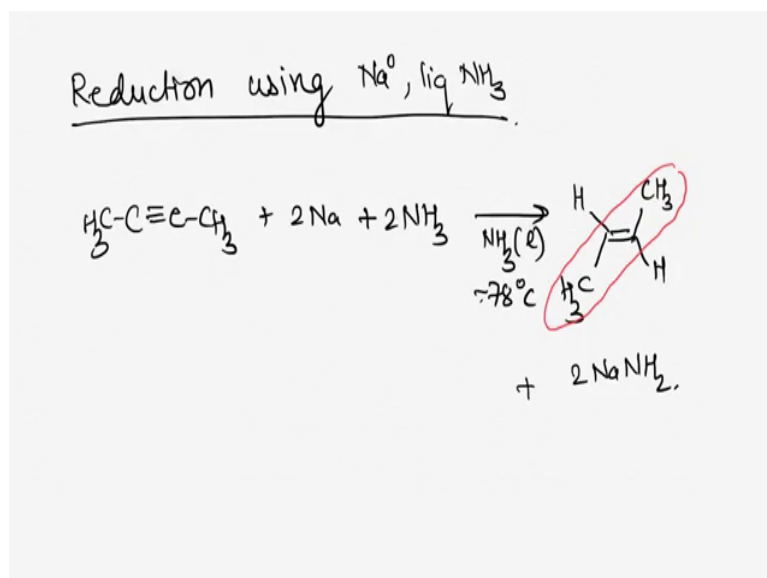 Reduction using Na⁰, liq NH₃.
H₃C-C≡C-CH₃ + 2Na + 2NH₃
NH₃(l)
-78°C
H
CH₃
H₃C
H
+ 2NaNH₂.